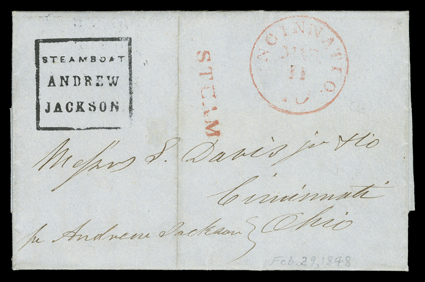 STEAMBOAT
ANDREW
JACKSON
STEAM
CINCINNATI O.
MAR
11
10
Messrs S. Davis jr & Co
Cincinnati
Ohio
pr Andrew Jackson
Feb. 29, 1848